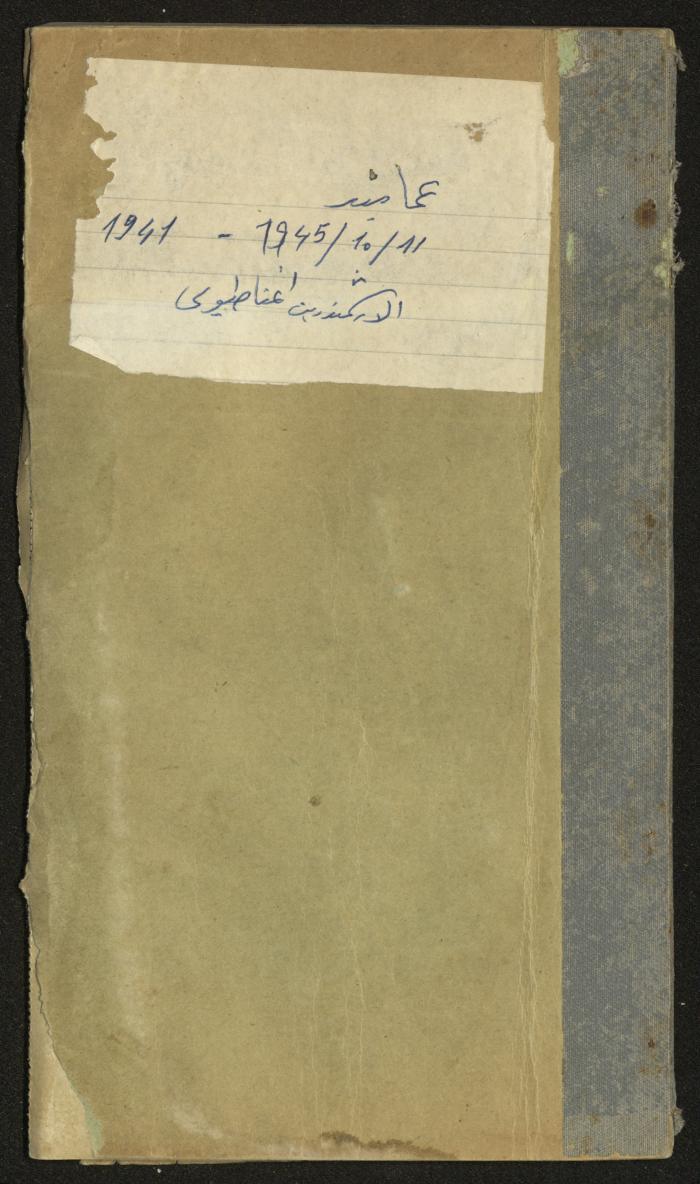 عماميد
1941 - 1945/10/11
الارشمندريت اغناطيوس